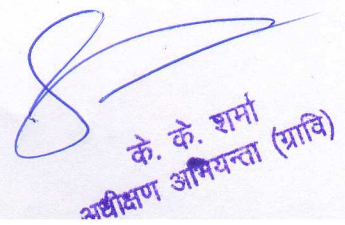 के. के. शर्मा
अधीक्षण अभियन्ता (ग्रावि)